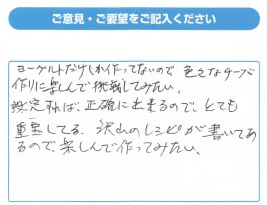 ご意見・ご要望をご記入ください
ヨーグルトだけしか作ってないので 色々なチーズ
作りに楽しんで挑戦してみたい。
設定すれば、正確に出来るので、とても
重宝してる。沢山のレシピが書いてあ
るので、楽しんで作ってみたい。